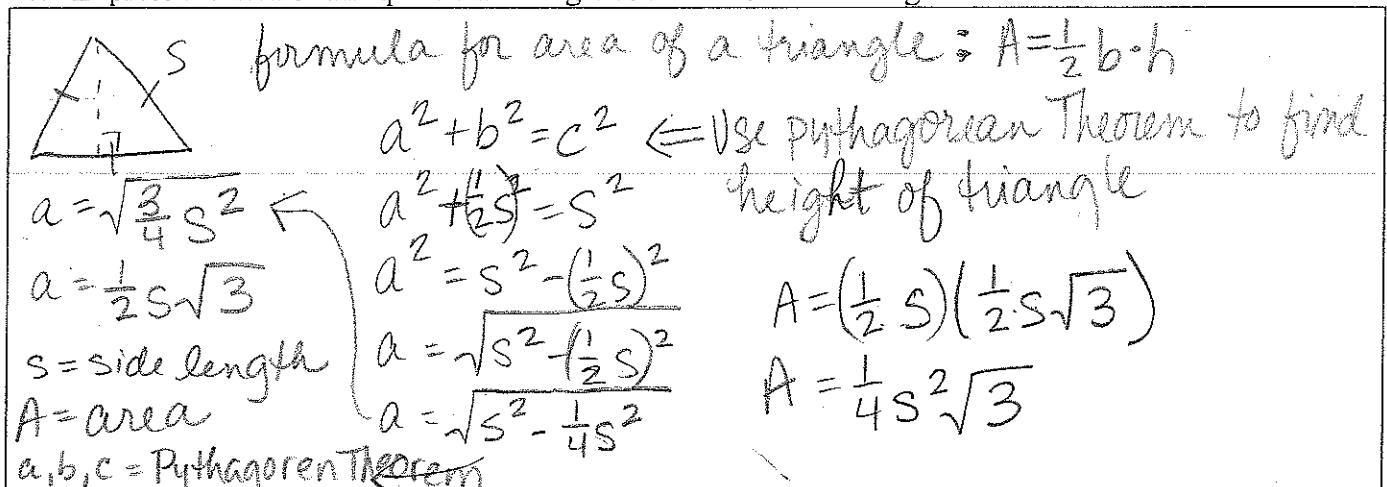 S
formula for area of a triangle : A = 1/2 b·h
a² + b² = c² ⇐ Use pythagorean Theorem to find
height of triangle
a² + (1/2 s)² = s²
a² = s² - (1/2 s)²
a = √(s² - (1/2 s)²)
a = √(s² - 1/4 s²)
a = √(3/4 s²)
a = 1/2 s√3
s = side length
A = area
a,b,c = Pythagoren Theorem
A = (1/2 s)(1/2 · s√3)
A = 1/4 s²√3